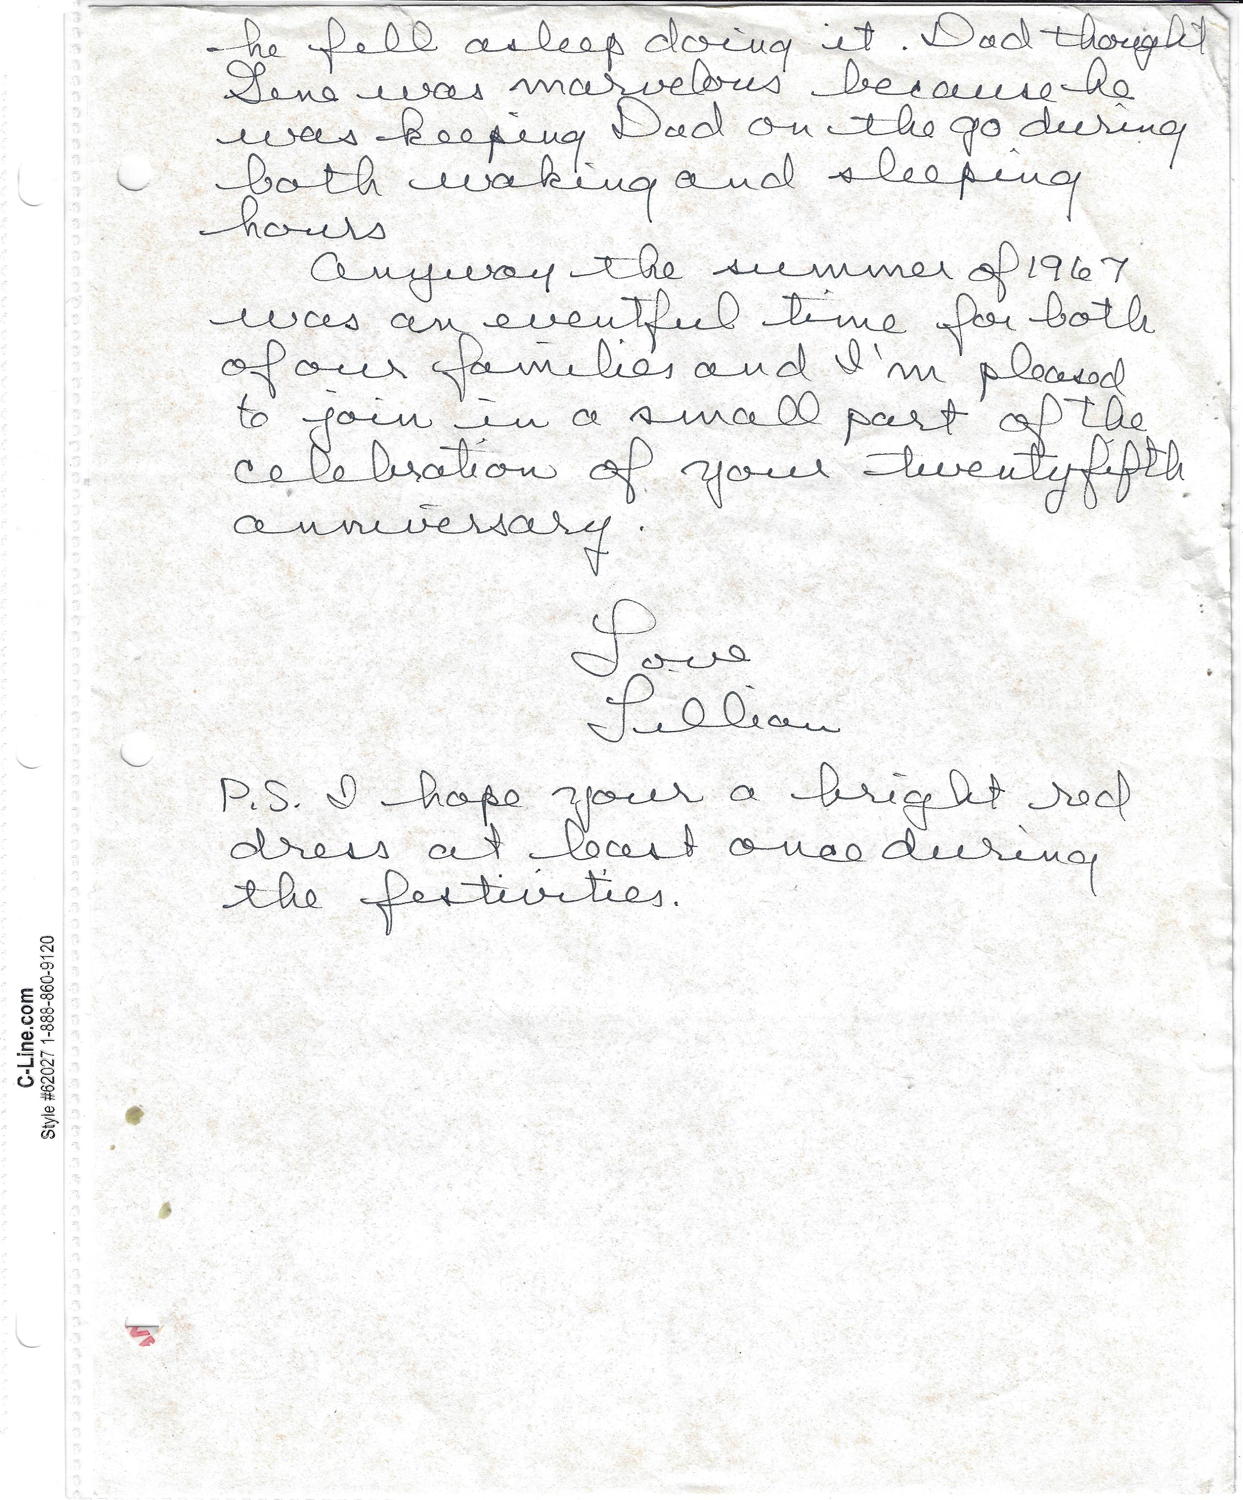 he fell asleep doing it. Dad thought
Gene was marvelous because he
was keeping Dad on the go during
both waking and sleeping
hours
Anyway the summer of 1967
was an eventful time for both
of our families and I'm pleased
to join in a small part of the
celebration of your twentyfifth
anniversary.
Love
Lillian
P.S. I hope your a bright red
dress at least once during
the festivities.
C-Line.com
Style #62027 1-888-860-9120